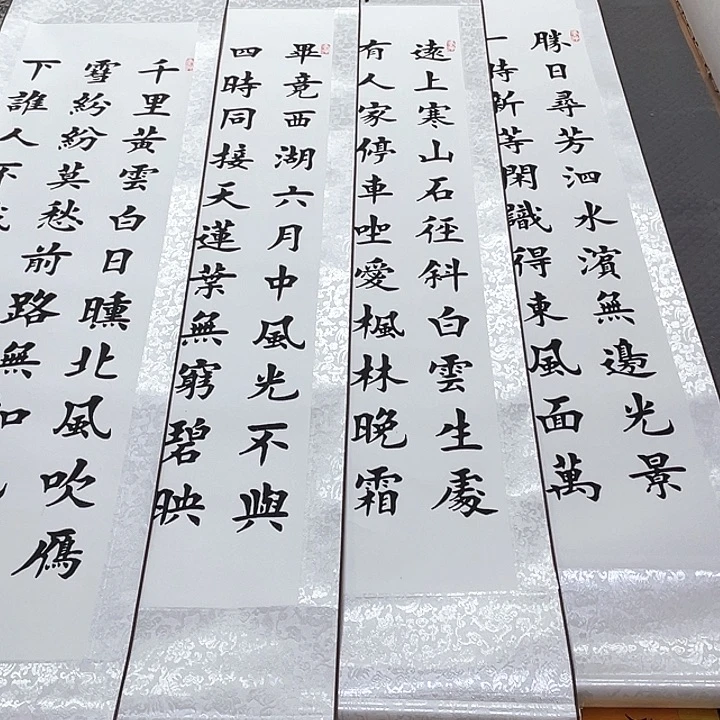 勝日尋芳泗水濱無邊光景
一時新等閑識得東風面萬
遠上寒山石徑斜白雲生處
有人家停車坐愛楓林晚霜
畢竟西湖六月中風光不與
四時同接天蓮葉無窮碧映
千里黃雲白日曛北風吹鴈
雪紛紛莫愁前路無知
下誰人不